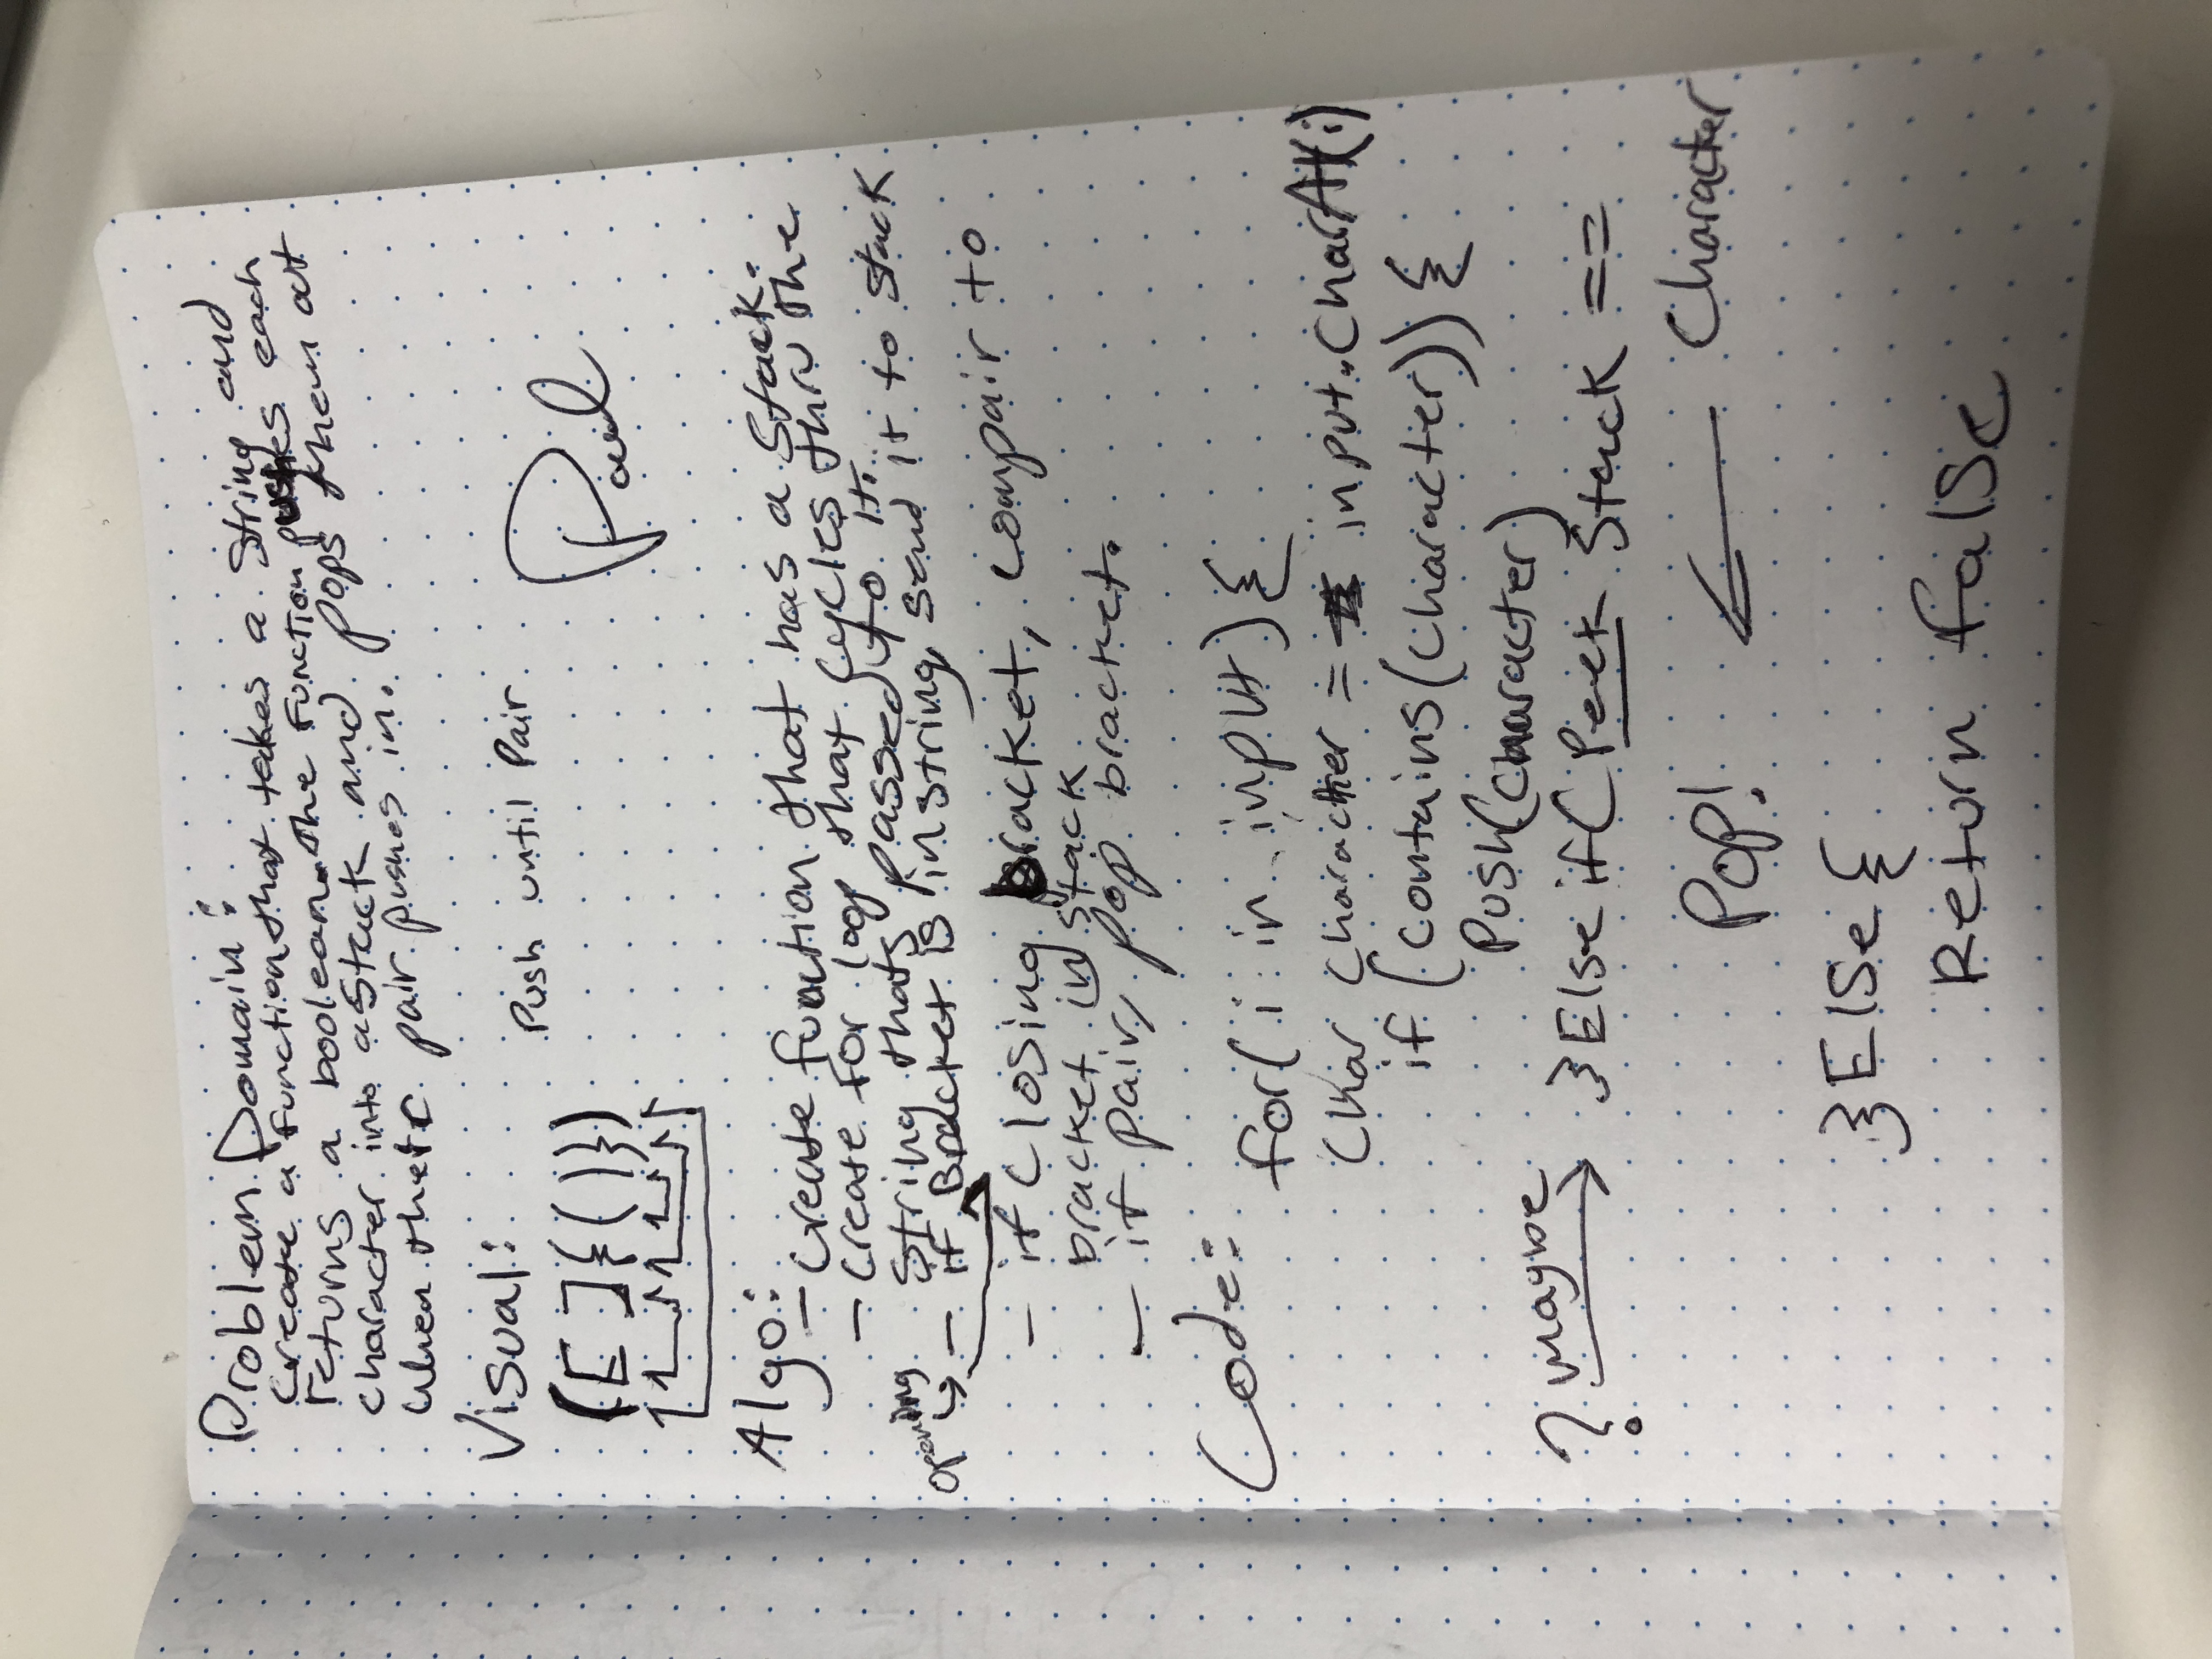 Problem Domain:
Create a function that takes a string and
returns a boolean. The function pushes each
character into a stack and pops them out
when their pair pushes in.
Visual:
Push until Pair
([]{()})
Paul
Algo:
- Create function that has a stack.
- Create for loop that cycles thru the
string thats passed to it.
opening
- if Bracket is in string, send it to stack
- if closing bracket, compair to
bracket in stack
- if pair, pop bracket.
Code:
for(i in input){
Char character = input.CharAt(i)
if (contains(character)){
Push(character)
? maybe
}Else if(Peek Stack ==
Character
Pop!
}Else{
Return false